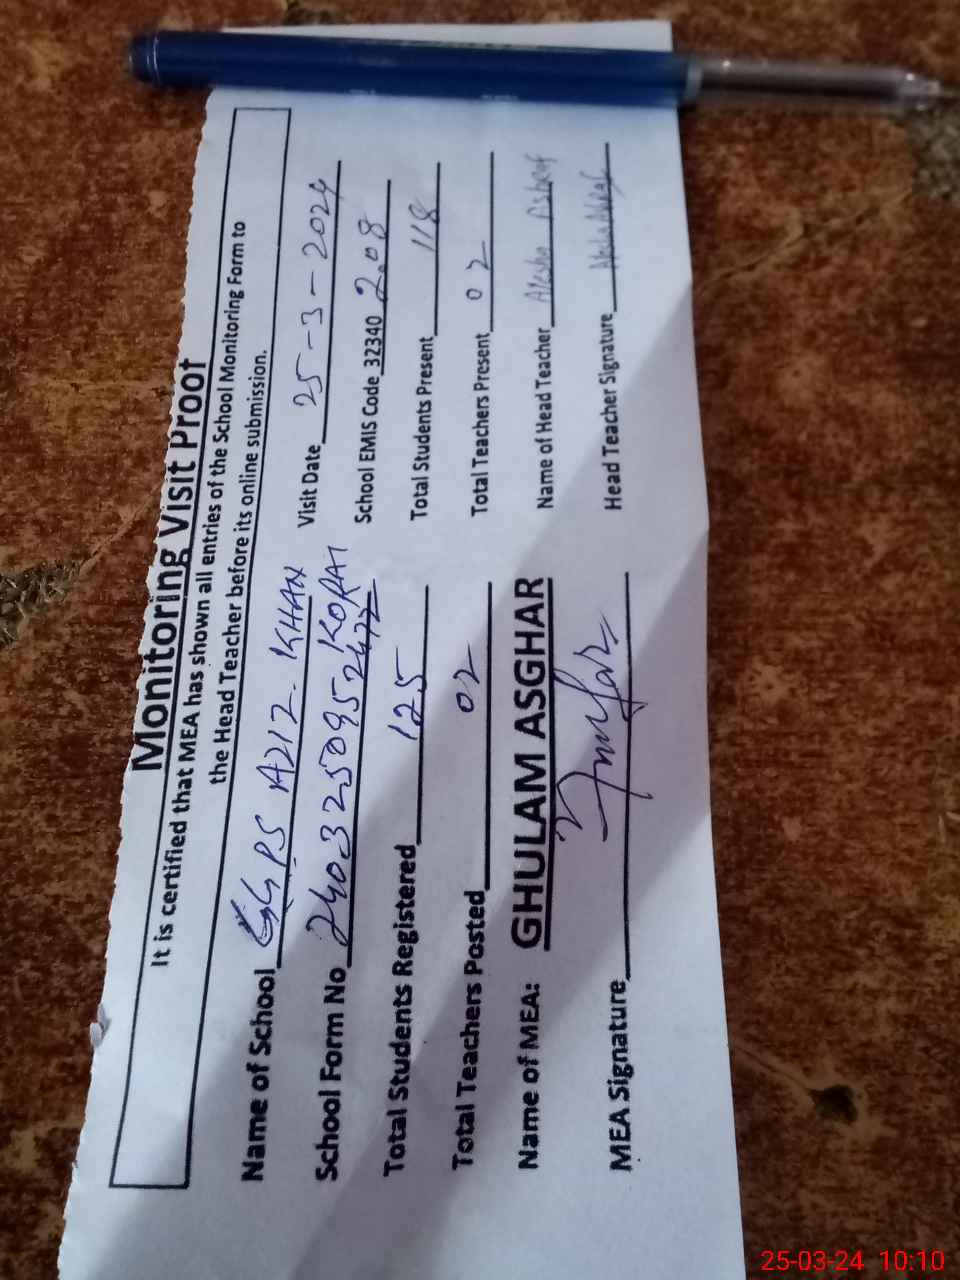 Monitoring Visit Proof
It is certified that MEA has shown all entries of the School Monitoring Form to
the Head Teacher before its online submission.
Name of School GGPS AZIZ KHAN KORAI Visit Date 25-3-2024
School Form No 2403250952477 School EMIS Code 32340 208
Total Students Registered 125 Total Students Present 118
Total Teachers Posted 02 Total Teachers Present 02
Name of MEA: GHULAM ASGHAR Name of Head Teacher Alesha Ashraf
MEA Signature Head Teacher Signature
25-03-24 10:10